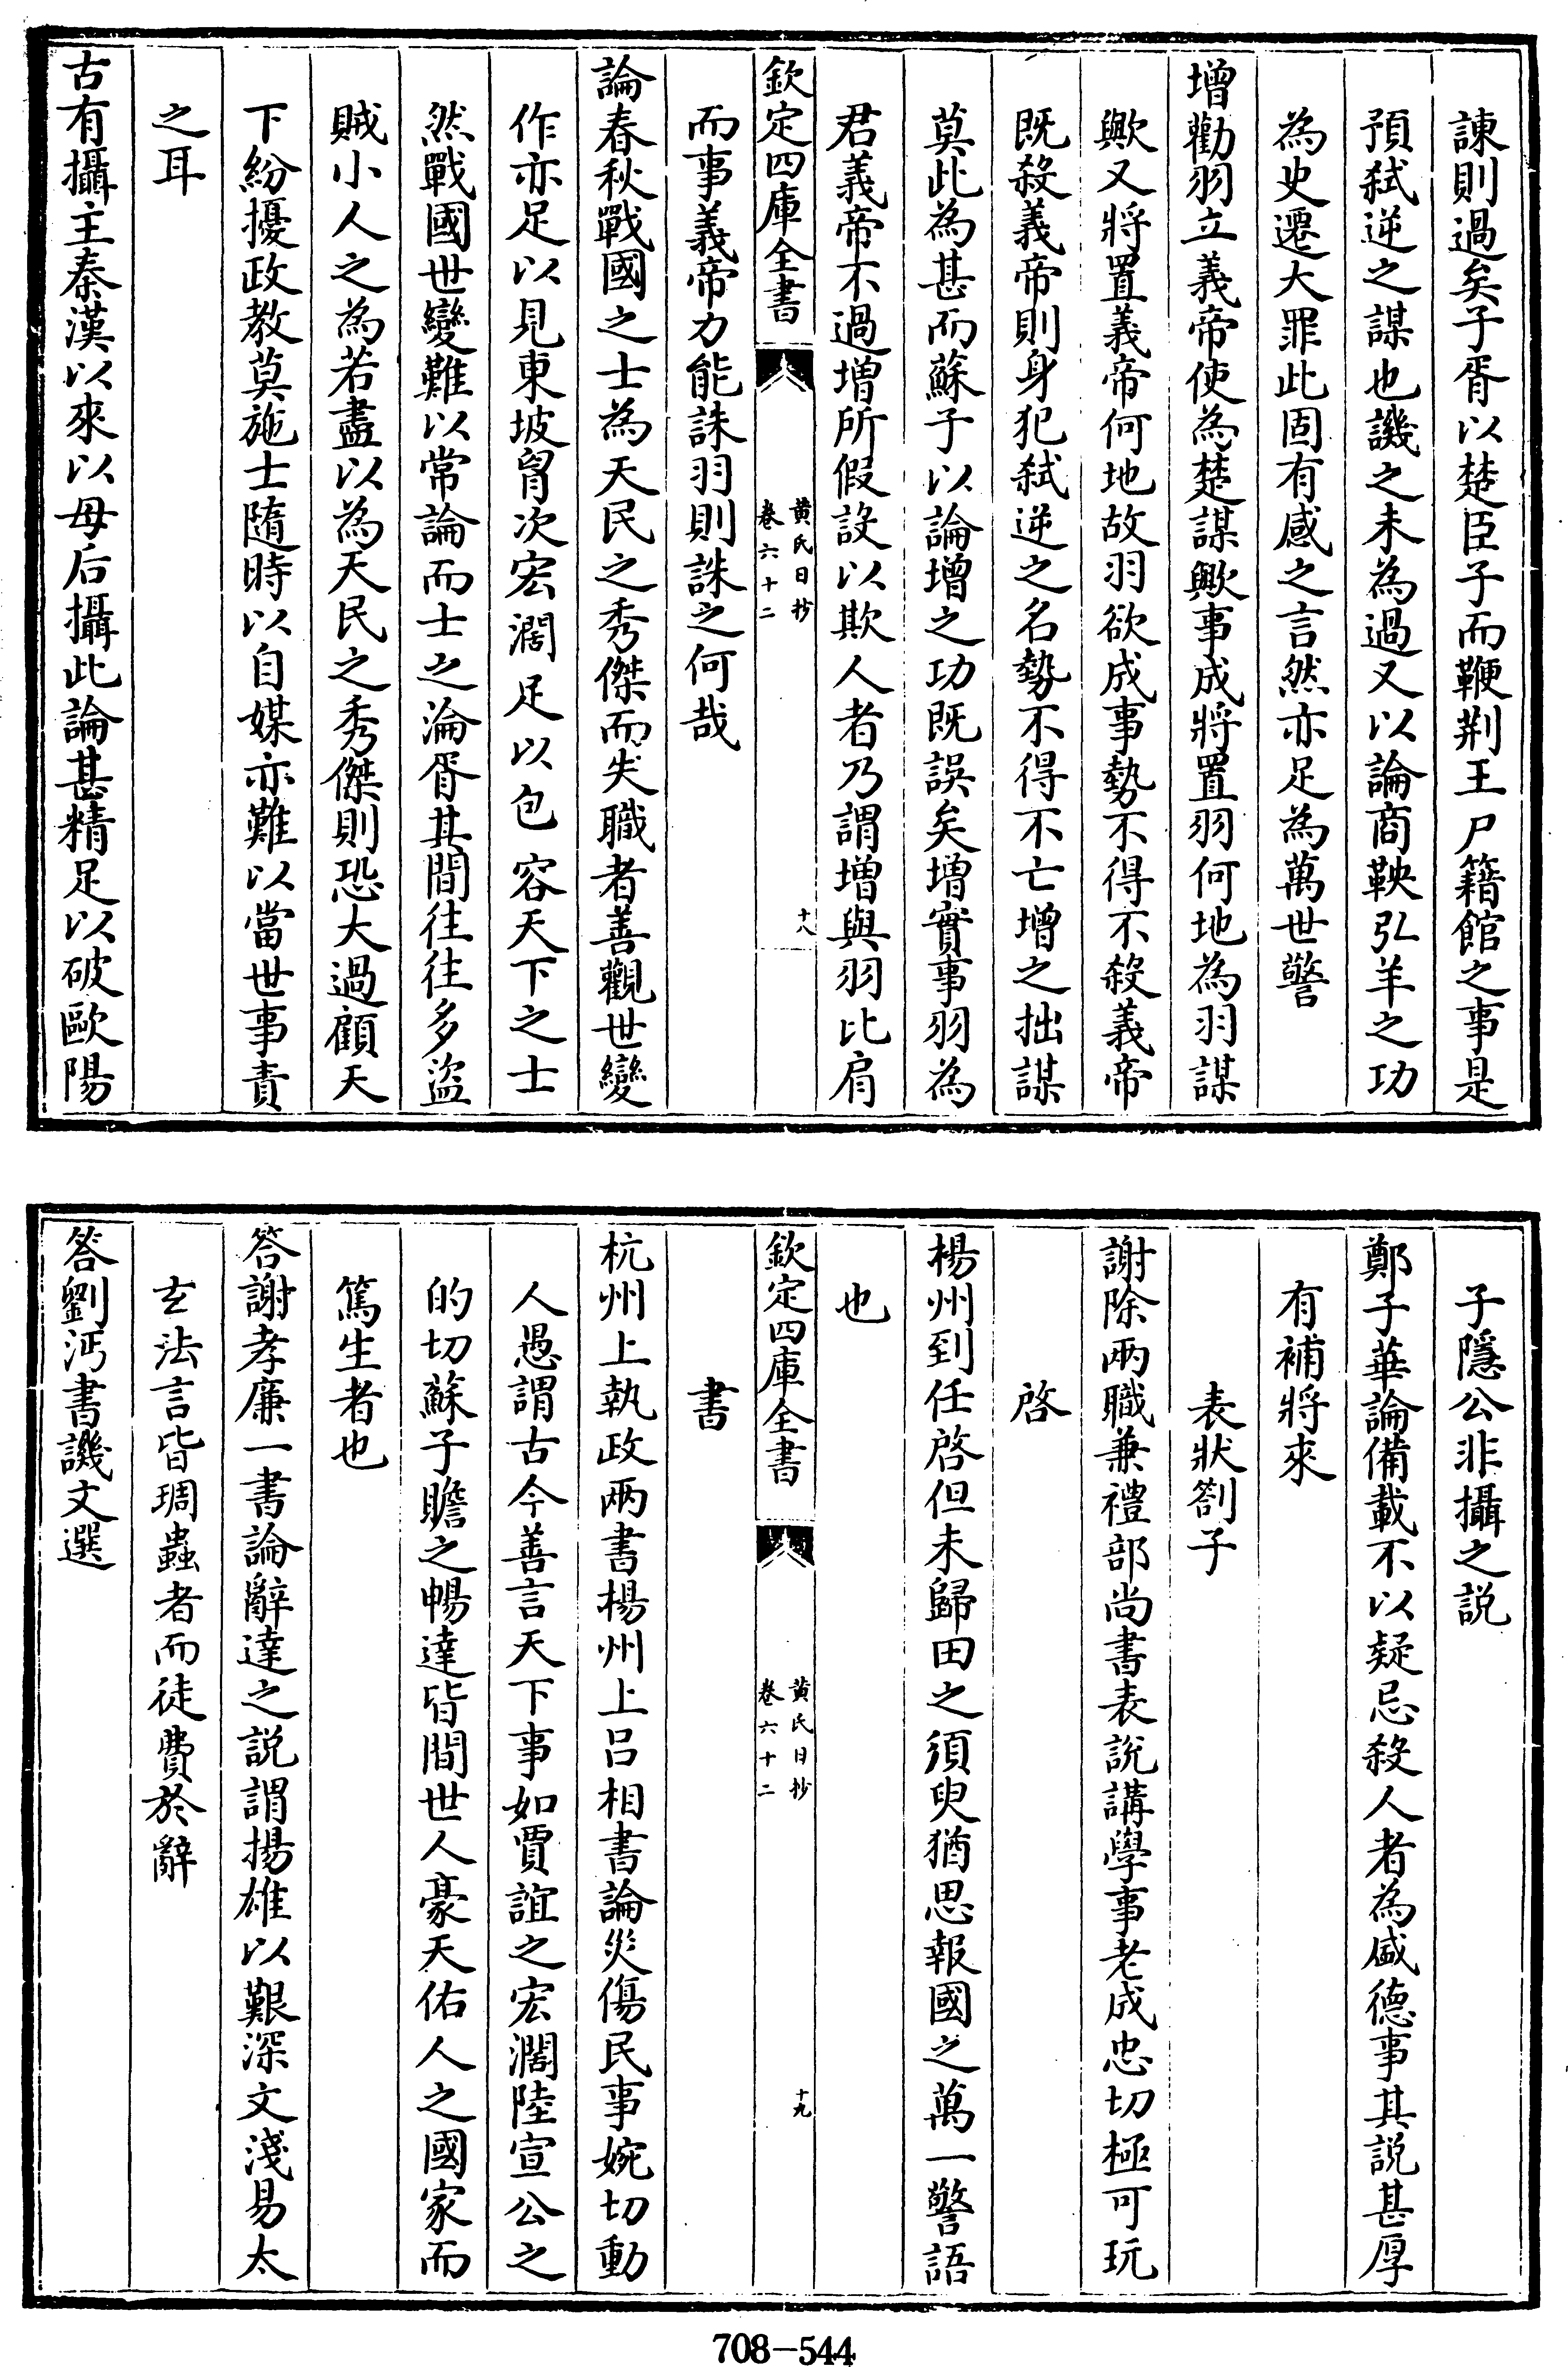 諌則過矣子胥以楚臣子而鞭荆王尸籍館之事是
預弑逆之謀也譏之未為過又以論商鞅弘羊之功
為史遷大罪此固有感之言然亦足為萬世警
增勸羽立義帝使為楚謀歟事成將置羽何地為羽謀
歟又將置義帝何地故羽欲成事勢不得不殺義帝
既殺義帝則身犯弑逆之名勢不得不亡增之拙謀
莫此為甚而蘇子以論增之功既誤矣増實事羽為
君義帝不過増所假設以欺人者乃謂増與羽比肩
欽定四庫全書
黄氏日抄
卷六十二
十八
而事義帝力能誅羽則誅之何哉
論春秋戰國之士為天民之秀傑而失職者善觀世變
作亦足以見東坡胷次宏濶足以包容天下之士
然戰國世變難以常論而士之淪胥其間往往多盜
賊小人之為若盡以為天民之秀傑則恐大過顧天
下紛擾政教莫施士隨時以自媒亦難以當世事責
之耳
古有攝主秦漢以來以母后攝此論甚精足以破歐陽
子隱公非攝之説
鄭子華論備載不以疑忌殺人者為盛德事其説甚厚
有補將來
表狀劄子
謝除兩職兼禮部尚書表說講學事老成忠切極可玩
啓
楊州到任啓但未歸田之須臾猶思報國之萬一警語
也
欽定四庫全書
黄氏日抄
卷六十二
十九
書
杭州上執政兩書揚州上吕相書論災傷民事婉切動
人愚謂古今善言天下事如賈誼之宏濶陸宣公之
的切蘇子瞻之暢達皆間世人豪天佑人之國家而
篤生者也
答謝孝廉一書論辭達之説謂揚雄以艱深文淺易太
𤣥法言皆琱蟲者而徒費於辭
答劉沔書譏文選
708-544